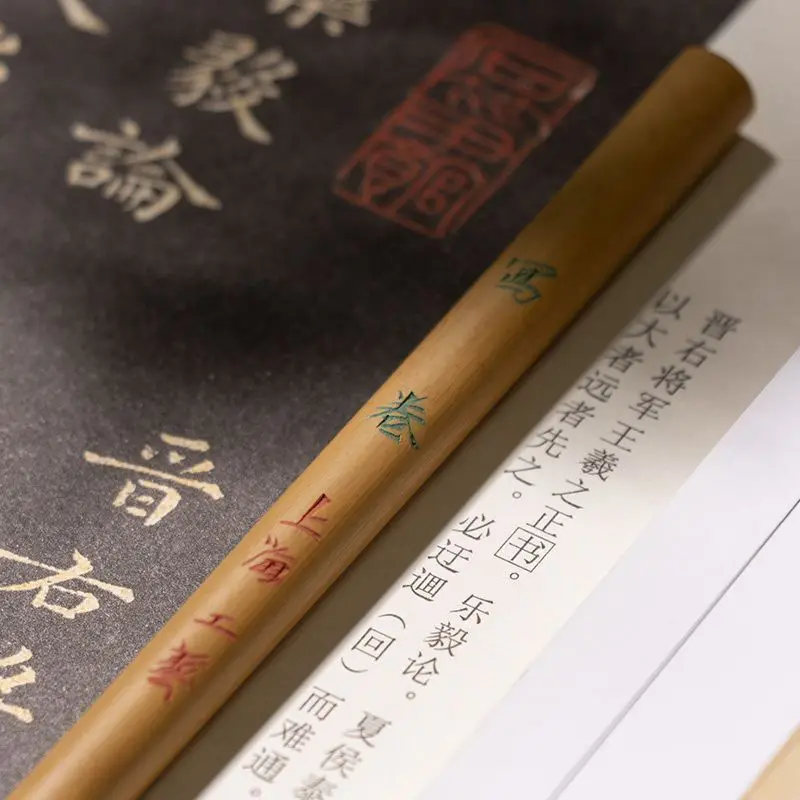 寫卷
上海工藝
毅論
晉右
晋右将军王羲之正书。乐毅论。夏侯泰
以大者远者先之。必迂逥（回）而难通。